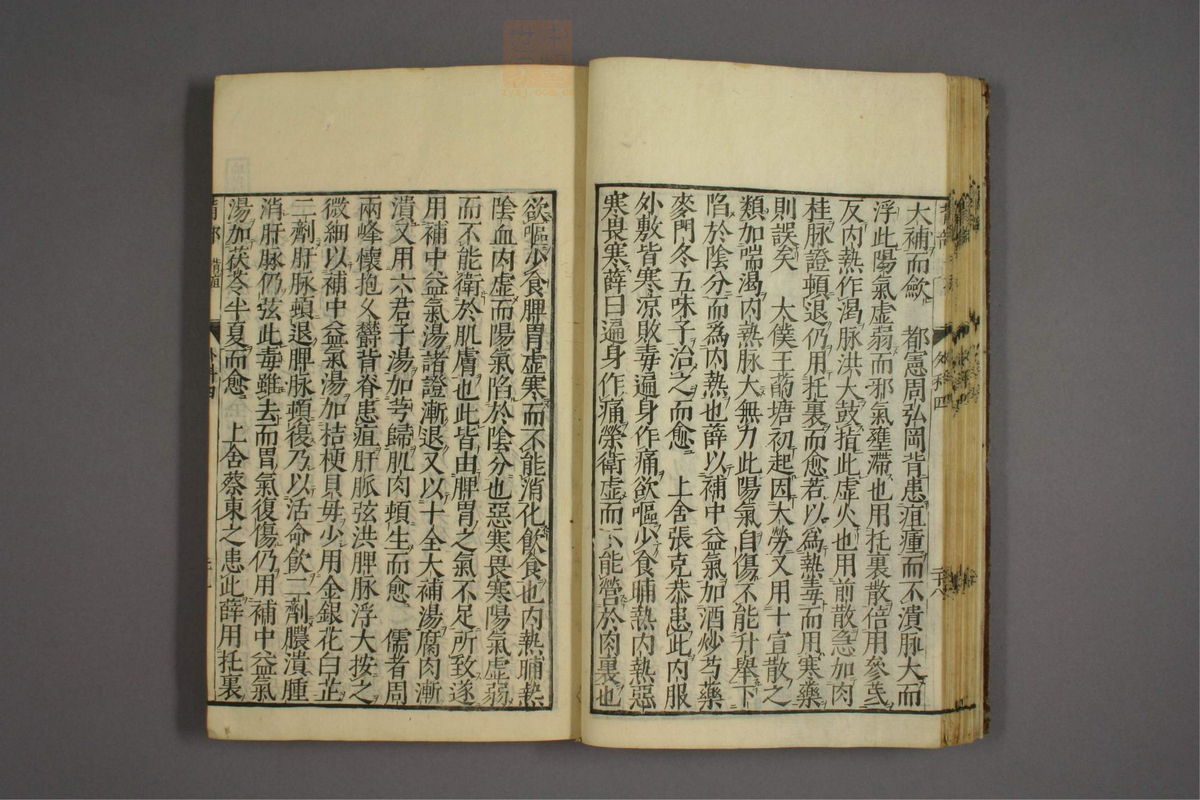 大補而歛　都憲周弘岡背患疽腫而不潰脉大而
浮此陽氣虚弱而邪氣壅滯也用托裏散倍用參芪
反内熱作渴脉洪大鼓指此虚火也用前散急加肉
桂脉證頓退仍用托裏而愈若以為熱毒而用寒藥
則誤矣　太僕王菊塘初起因大勞又用十宣散之
類加喘渴内熱脉大無力此陽氣自傷不能升舉下
陷於陰分而為内熱也薛以補中益氣加酒炒芍藥
麥門冬五味子治之而愈　上舍張克恭患此内服
外敷皆寒凉敗毒遍身作痛欲嘔少食晡熱内熱惡
寒畏寒薛曰遍身作痛榮衛虚而不能營於肉裏也
欲嘔少食脾胃虚寒而不能消化飲食也内熱晡熱
陰血内虚而陽氣陷於陰分也惡寒畏寒陽氣虚弱
而不能衛於肌膚也此皆由脾胃之氣不足所致遂
用補中益氣湯諸證漸退又以十全大補湯腐肉漸
潰又用六君子湯加芎歸肌肉頓生而愈　儒者周
兩峰懷抱久欝背脊患疽肝脈弦洪脾脉浮大按之
微細以補中益氣湯加桔梗貝母少用金銀花白芷
二劑肝脉頓退脾脉頓復乃以活命飲二劑膿潰腫
消肝脉仍弦此毒雖去而胃氣復傷仍用補中益氣
湯加茯苓半夏而愈　上舍蔡東之患此薛用托裏
外科四